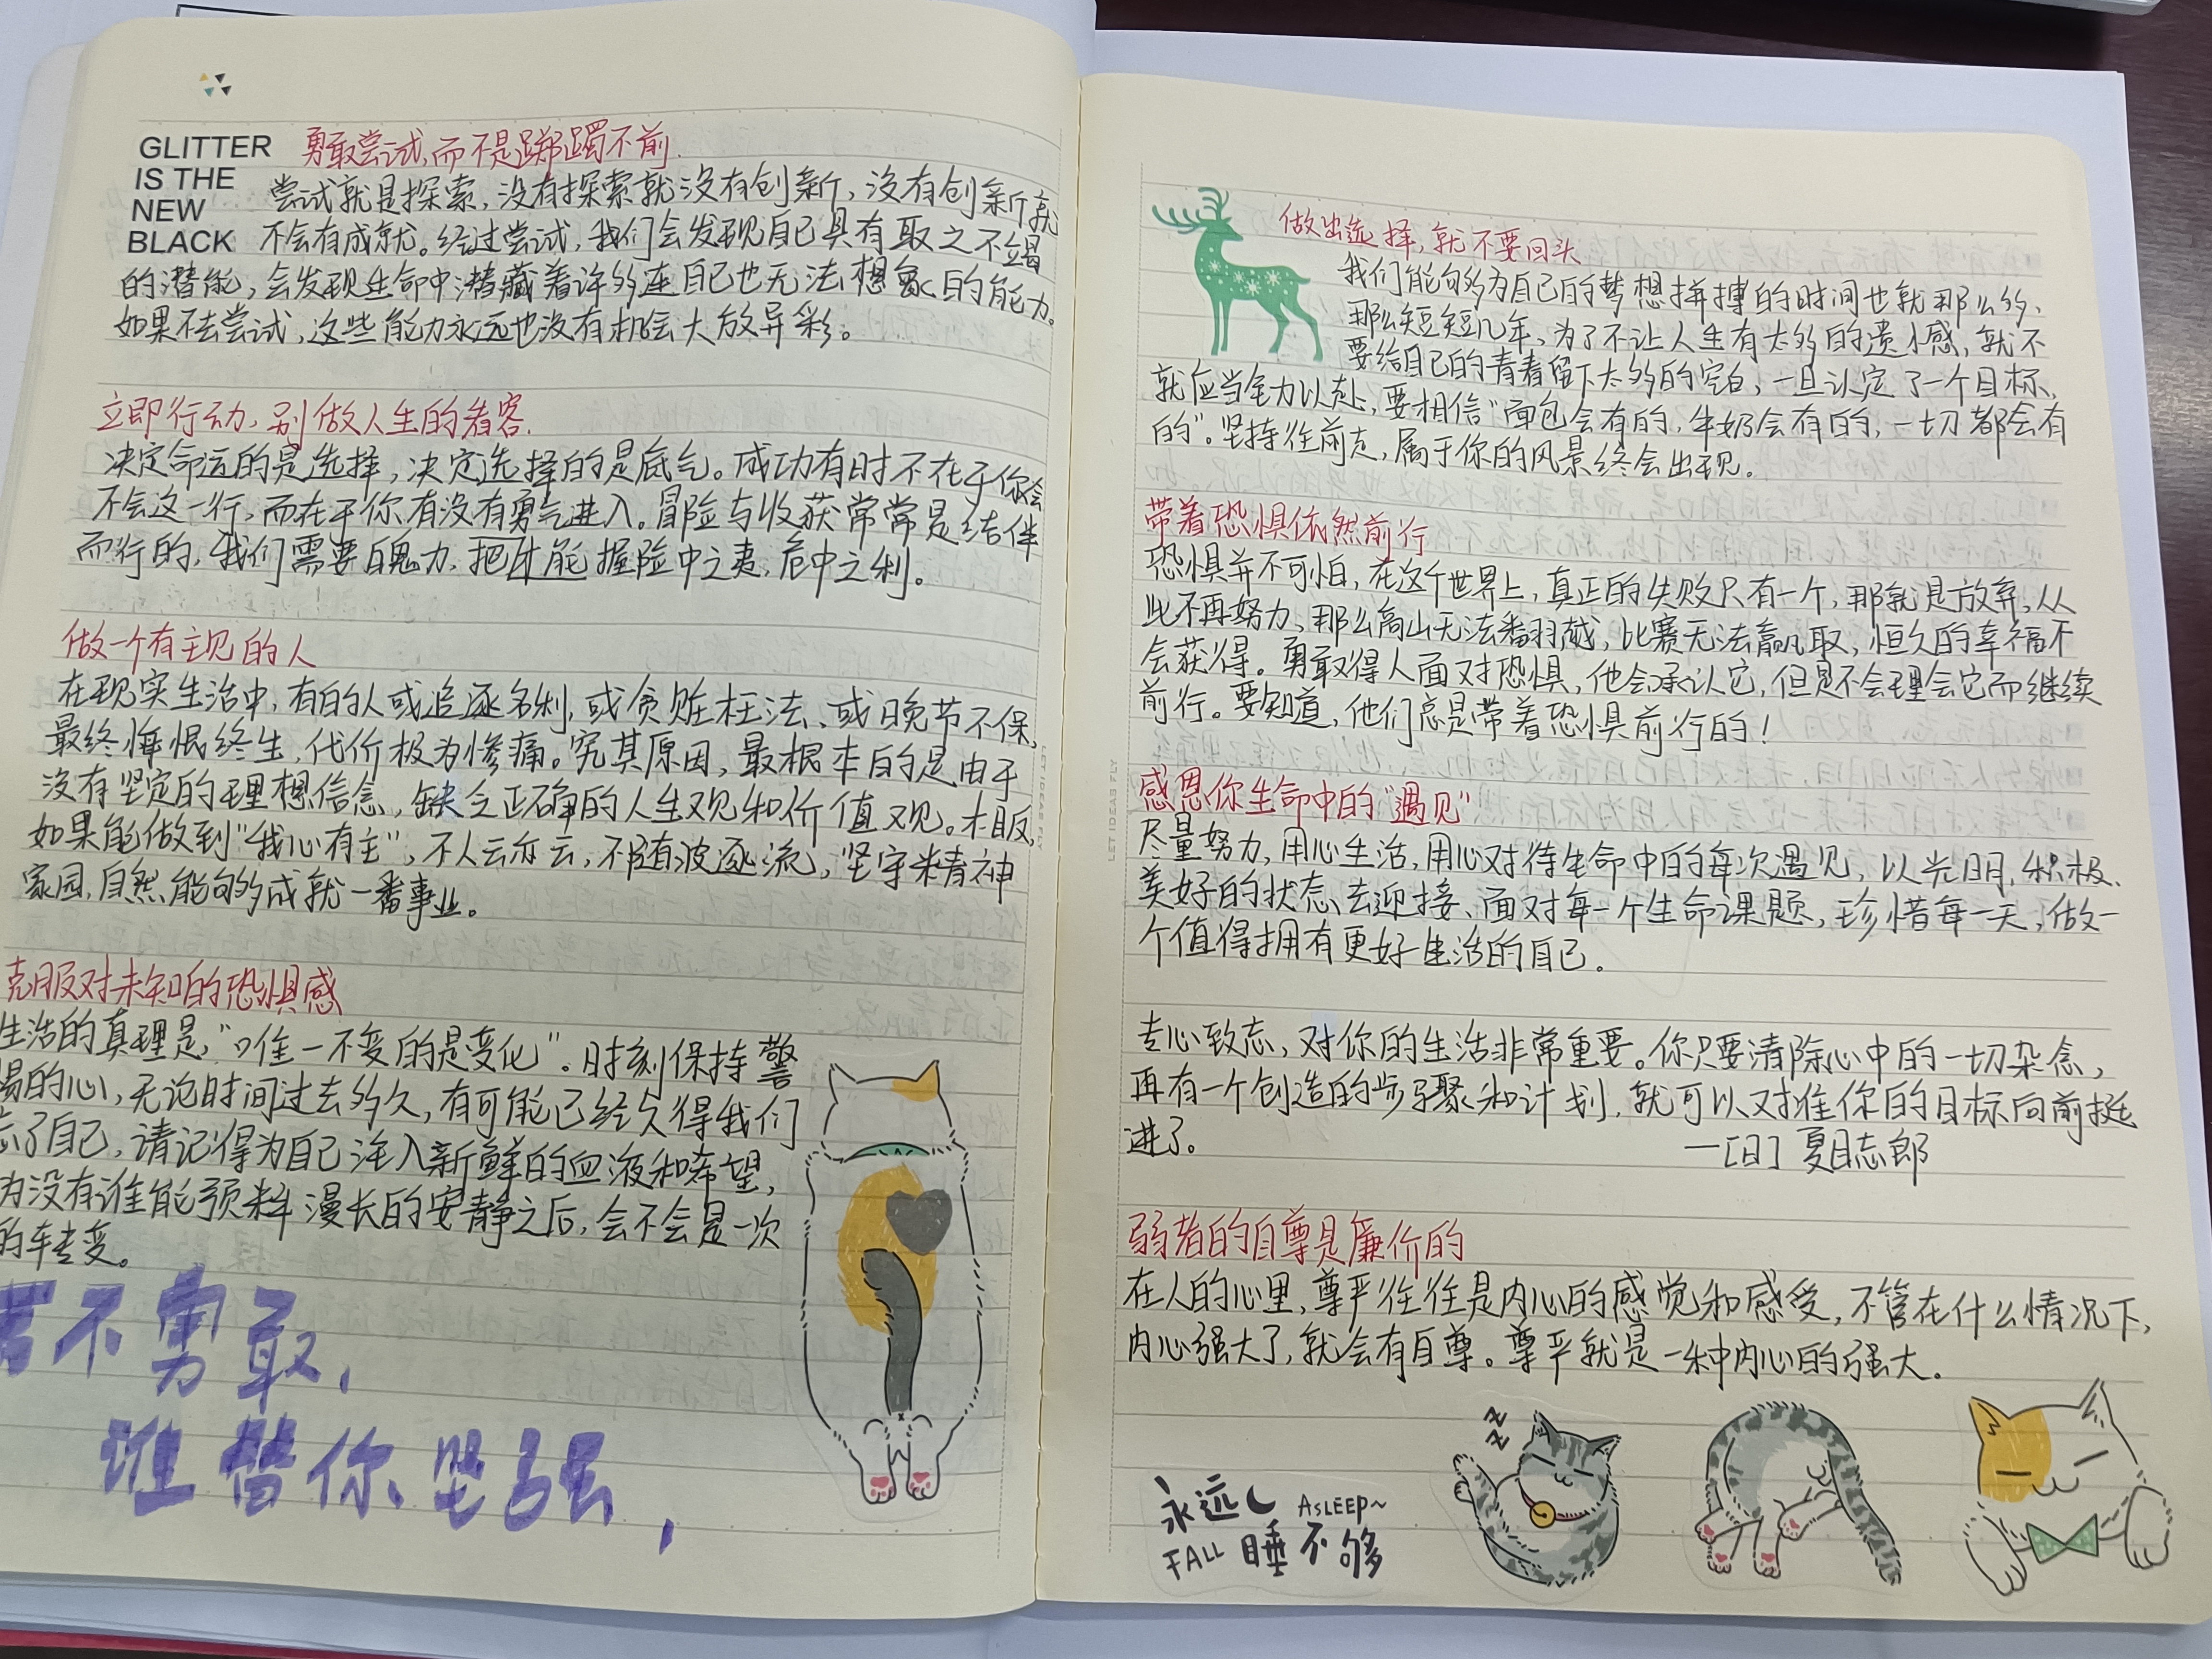 GLITTER
IS THE
NEW
BLACK
勇敢尝试,而不是踯躅不前.
尝试就是探索,没有探索就没有创新,没有创新就
不会有成就。经过尝试,我们会发现自己具有取之不竭
的潜能,会发现生命中潜藏着许多连自己也无法想象的能力。
如果不去尝试,这些能力永远也没有机会大放异彩。
立即行动,别做人生的看客.
决定命运的是选择,决定选择的是底气。成功有时不在于你会
不会这一行,而在于你有没有勇气进入。冒险与收获常常是结伴
而行的,我们需要魄力,把才能握险中之夷,危中之利。
做一个有主见的人
在现实生活中,有的人或追逐名利,或贪赃枉法、或晚节不保,
最终悔恨终生,代价极为惨痛。究其原因,最根本的是由于
没有坚定的理想信念,缺乏正确的人生观和价值观。相反,
如果能做到“我心有主”,不人云亦云,不随波逐流,坚守精神
家园,自然能够成就一番事业。
克服对未知的恐惧感
生活的真理是,“唯一不变的是变化”.时刻保持警
惕的心,无论时间过去多久,有可能已经久得我们
忘了自己,请记得为自己注入新鲜的血液和希望,
为没有谁能预料漫长的安静之后,会不会是一次
的转变。
若不勇敢,
谁替你坚强,
LET IDEAS FLY
做出选择,就不要回头
我们能够为自己的梦想拼搏的时间也就那么多、
那么短短几年,为了不让人生有太多的遗憾,就不
要给自己的青春留下太多的空白,一旦认定了一个目标、
就应当全力以赴,要相信“面包会有的,牛奶会有的,一切都会有
的”.坚持往前走,属于你的风景终会出现.
带着恐惧依然前行
恐惧并不可怕,在这个世界上,真正的失败只有一个,那就是放弃,从
此不再努力,那么高山无法翻越,比赛无法赢取,恒久的幸福不
会获得。勇敢得人面对恐惧,他会承认它,但是不会理会它而继续
前行。要知道,他们总是带着恐惧前行的!
感恩你生命中的“遇见”
尽量努力,用心生活,用心对待生命中的每次遇见,以光明,积极、
美好的状态、去迎接、面对每一个生命课题,珍惜每一天,做一
个值得拥有更好生活的自己.
专心致志,对你的生活非常重要。你只要清除心中的一切杂念,
再有一个创造的步骤和计划,就可以对准你的目标向前挺
进了.
—[日]夏目志郎
弱者的自尊是廉价的
在人的心里,尊严往往是内心的感觉和感受,不管在什么情况下,
内心强大了,就会有自尊。尊严就是一种内心的强大.
LET IDEAS FLY
zzz
永远 ASLEEP~
FALL 睡不够